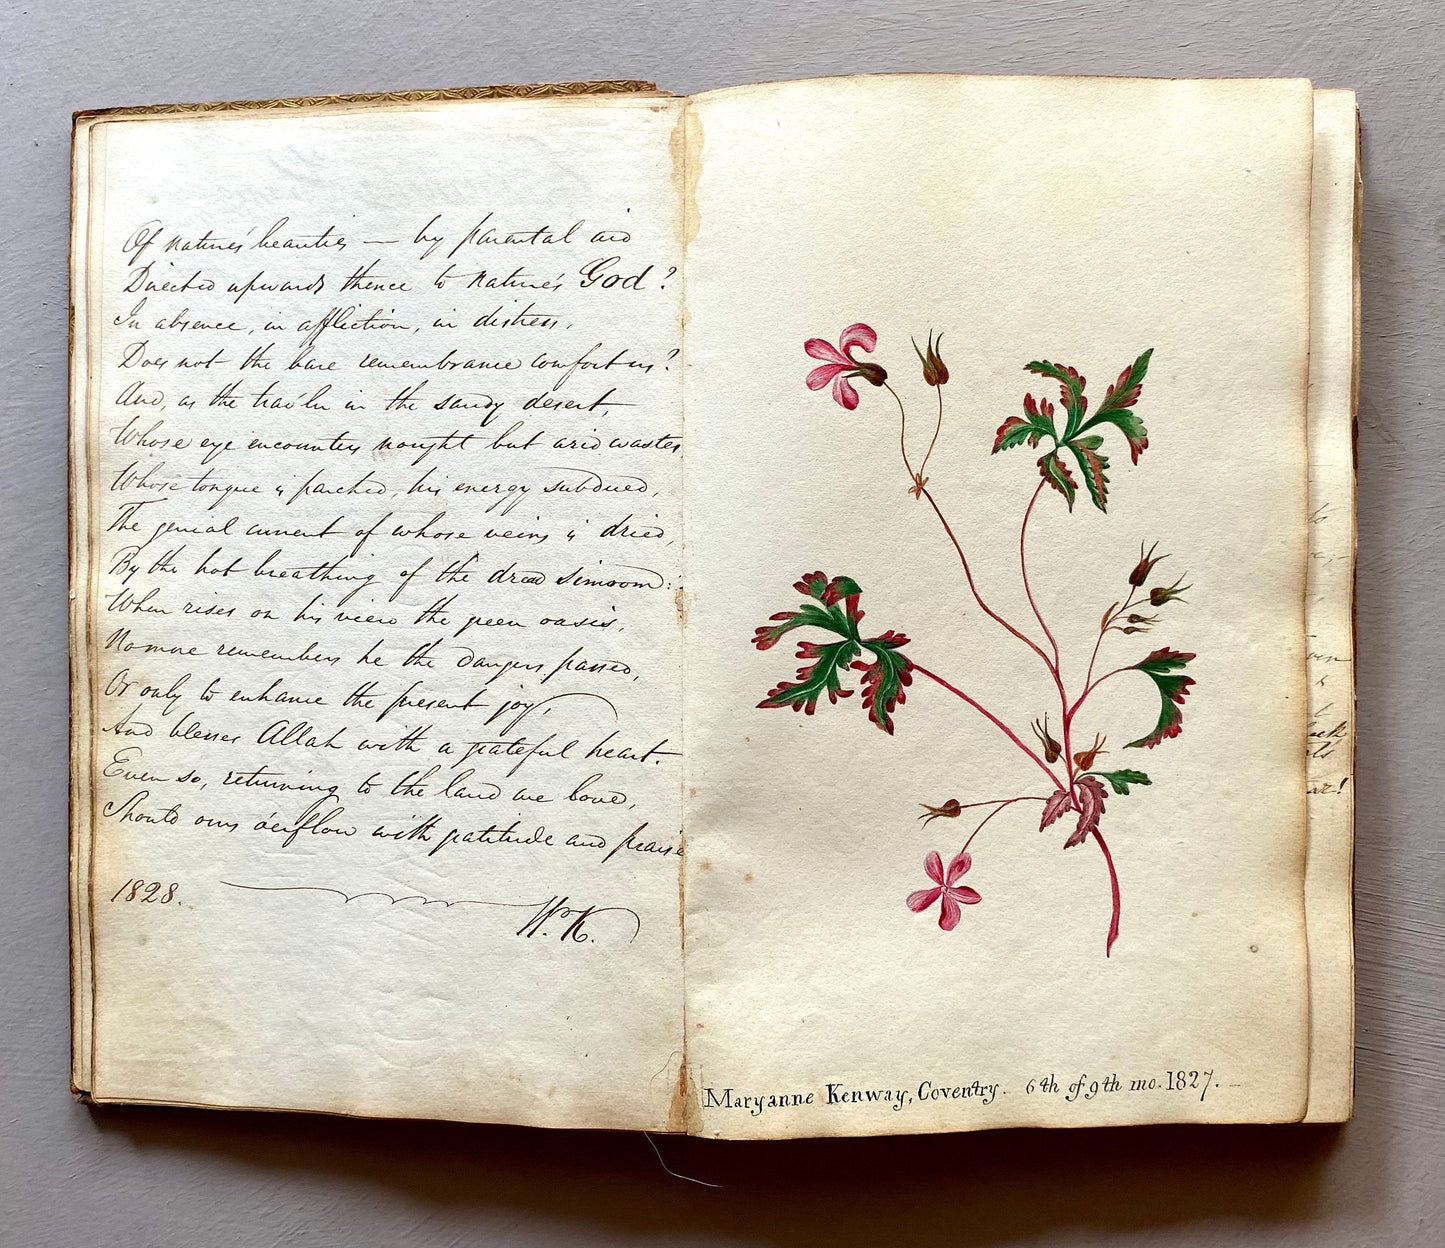 Of nature's beauties — by parental aid
Directed upwards thence to nature's God?
In absence, in affliction, in distress,
Does not the bare remembrance comfort us?
And, as the trav'ler in the sandy desert,
Whose eye encounters nought but arid wastes
Whose tongue is parched, his energy subdued,
The genial current of whose veins is dried,
By the hot breathing of the dread simoom:
When rises on his view the green oasis,
No more remembers he the dangers passed,
Or only to enhance the present joy,
And blesses Allah with a grateful heart.
Even so, returning to the land we love,
Should ours o'erflow with gratitude and praise
1828.
W. K.
Maryanne Kenway, Coventry. 6th of 9th mo. 1827.